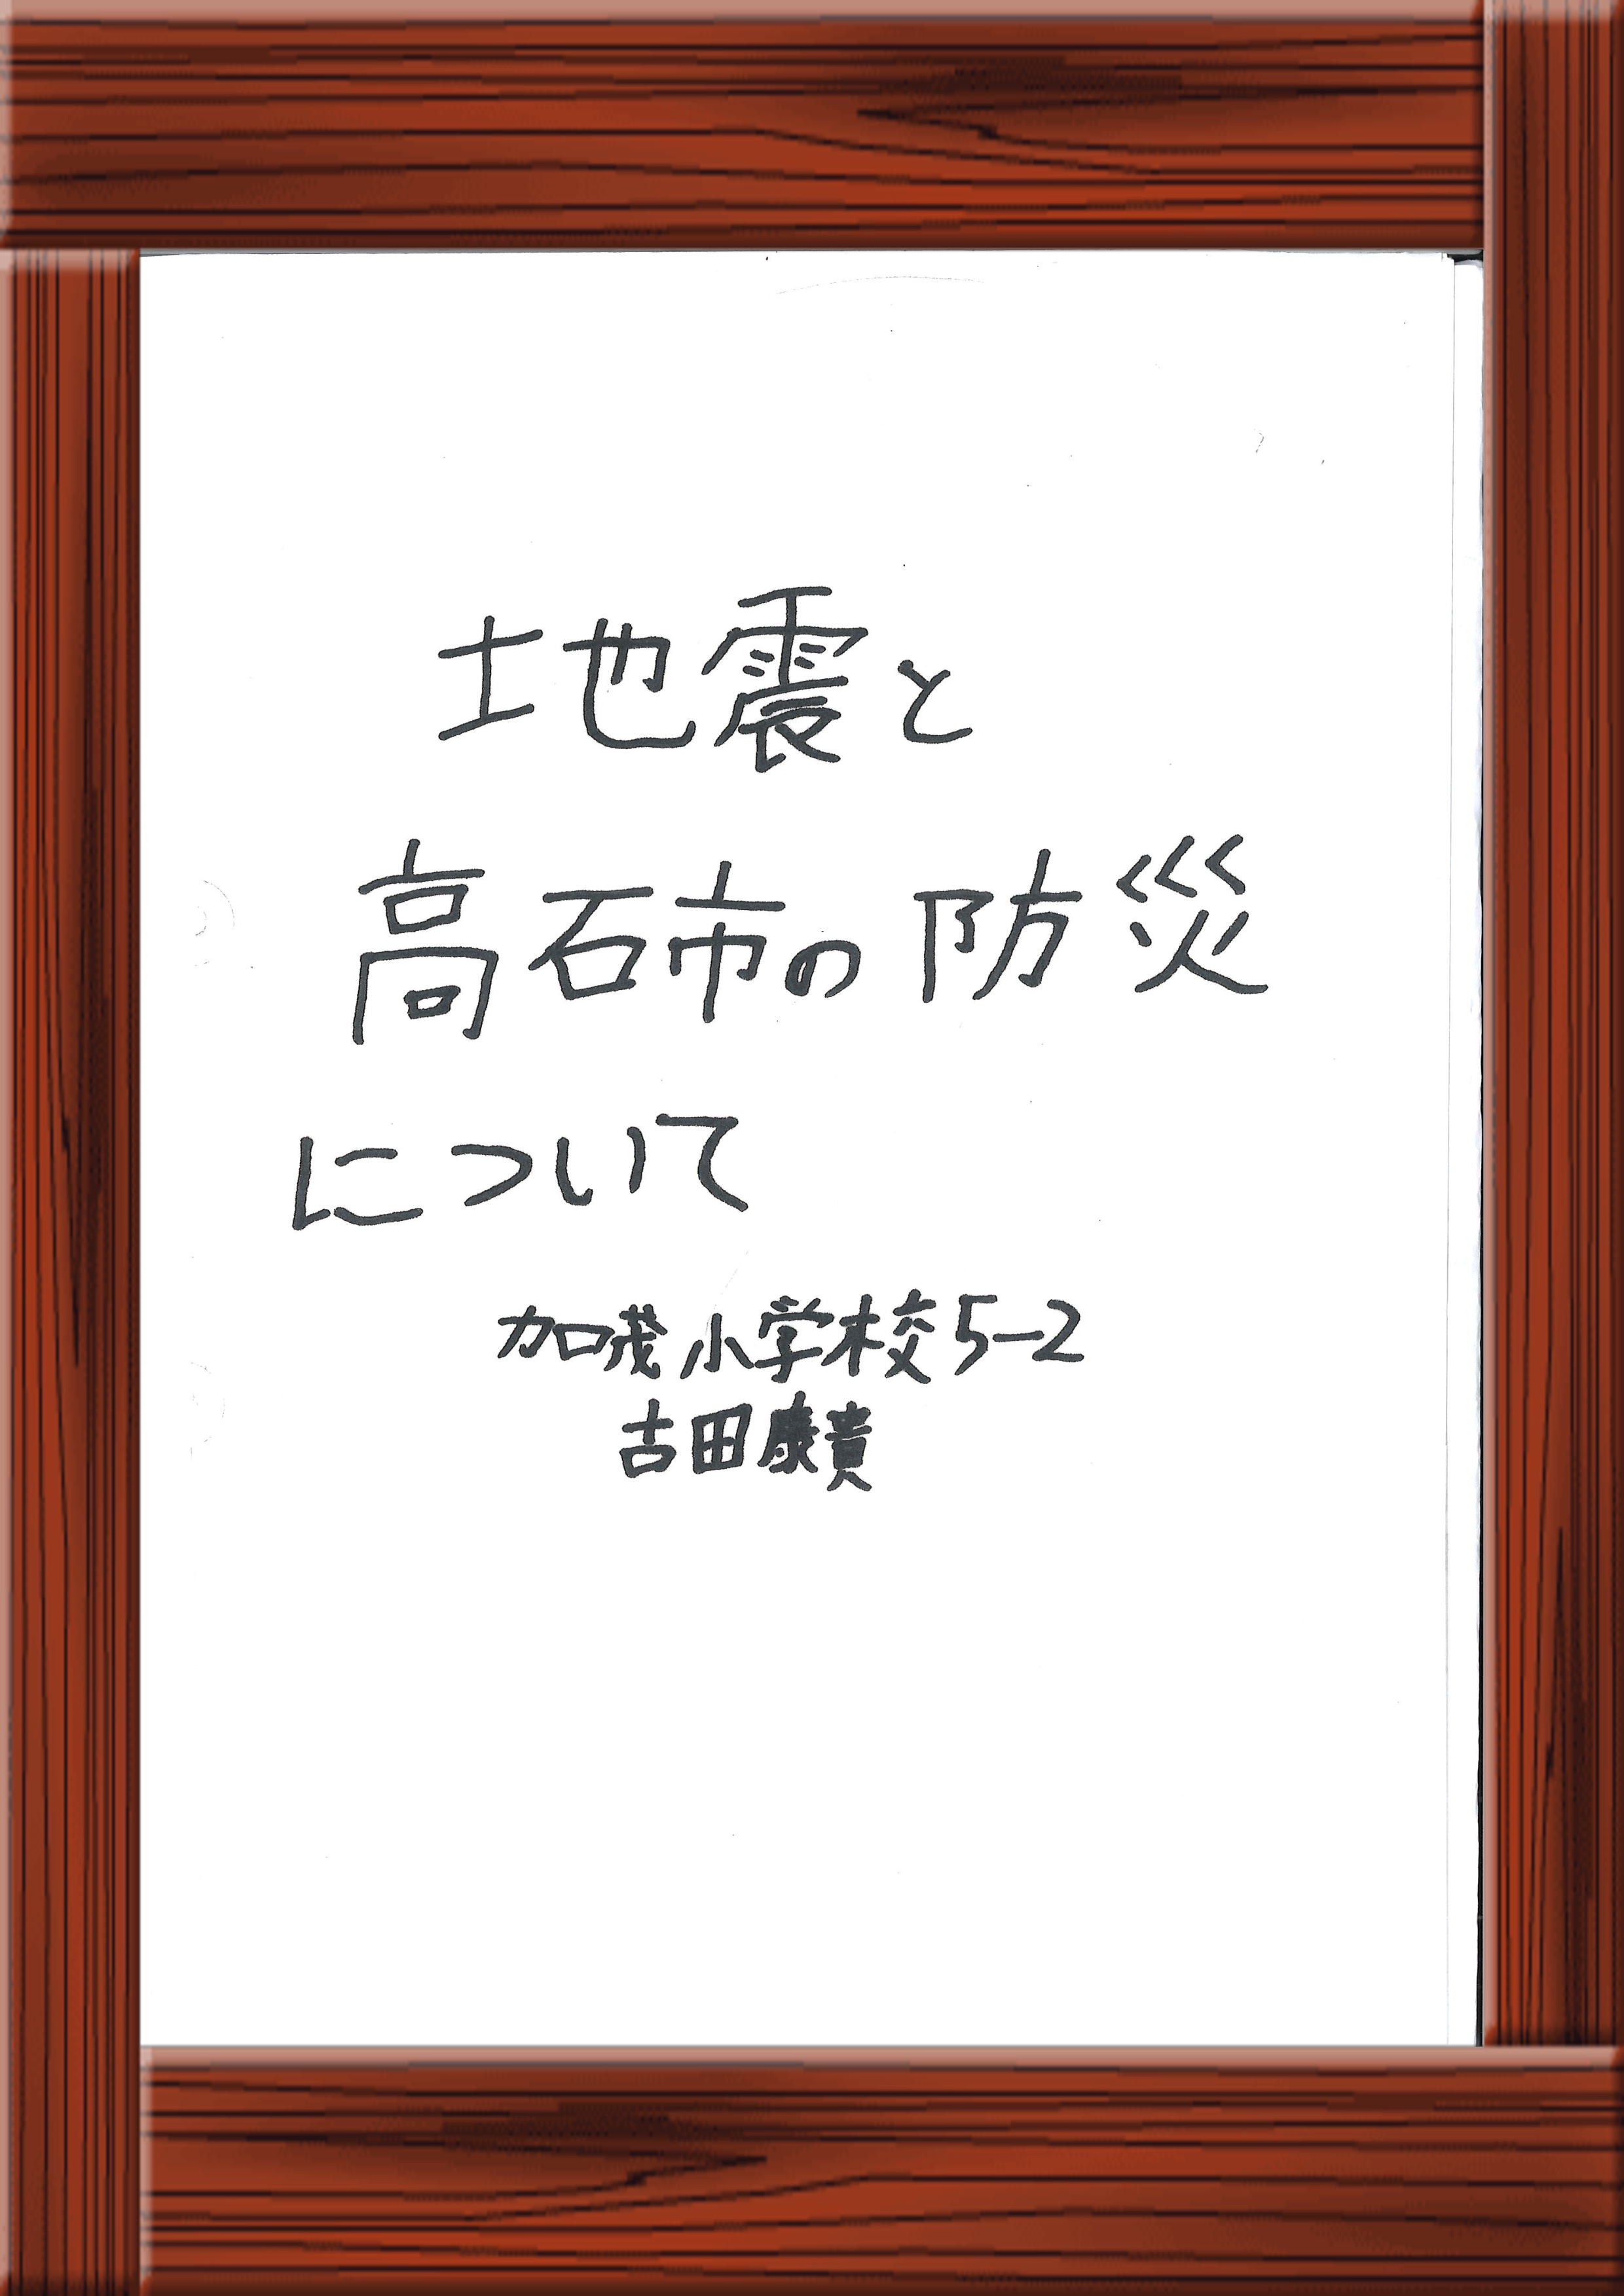 地震と
高石市の防災
について
加茂小学校5-2
古田康貴